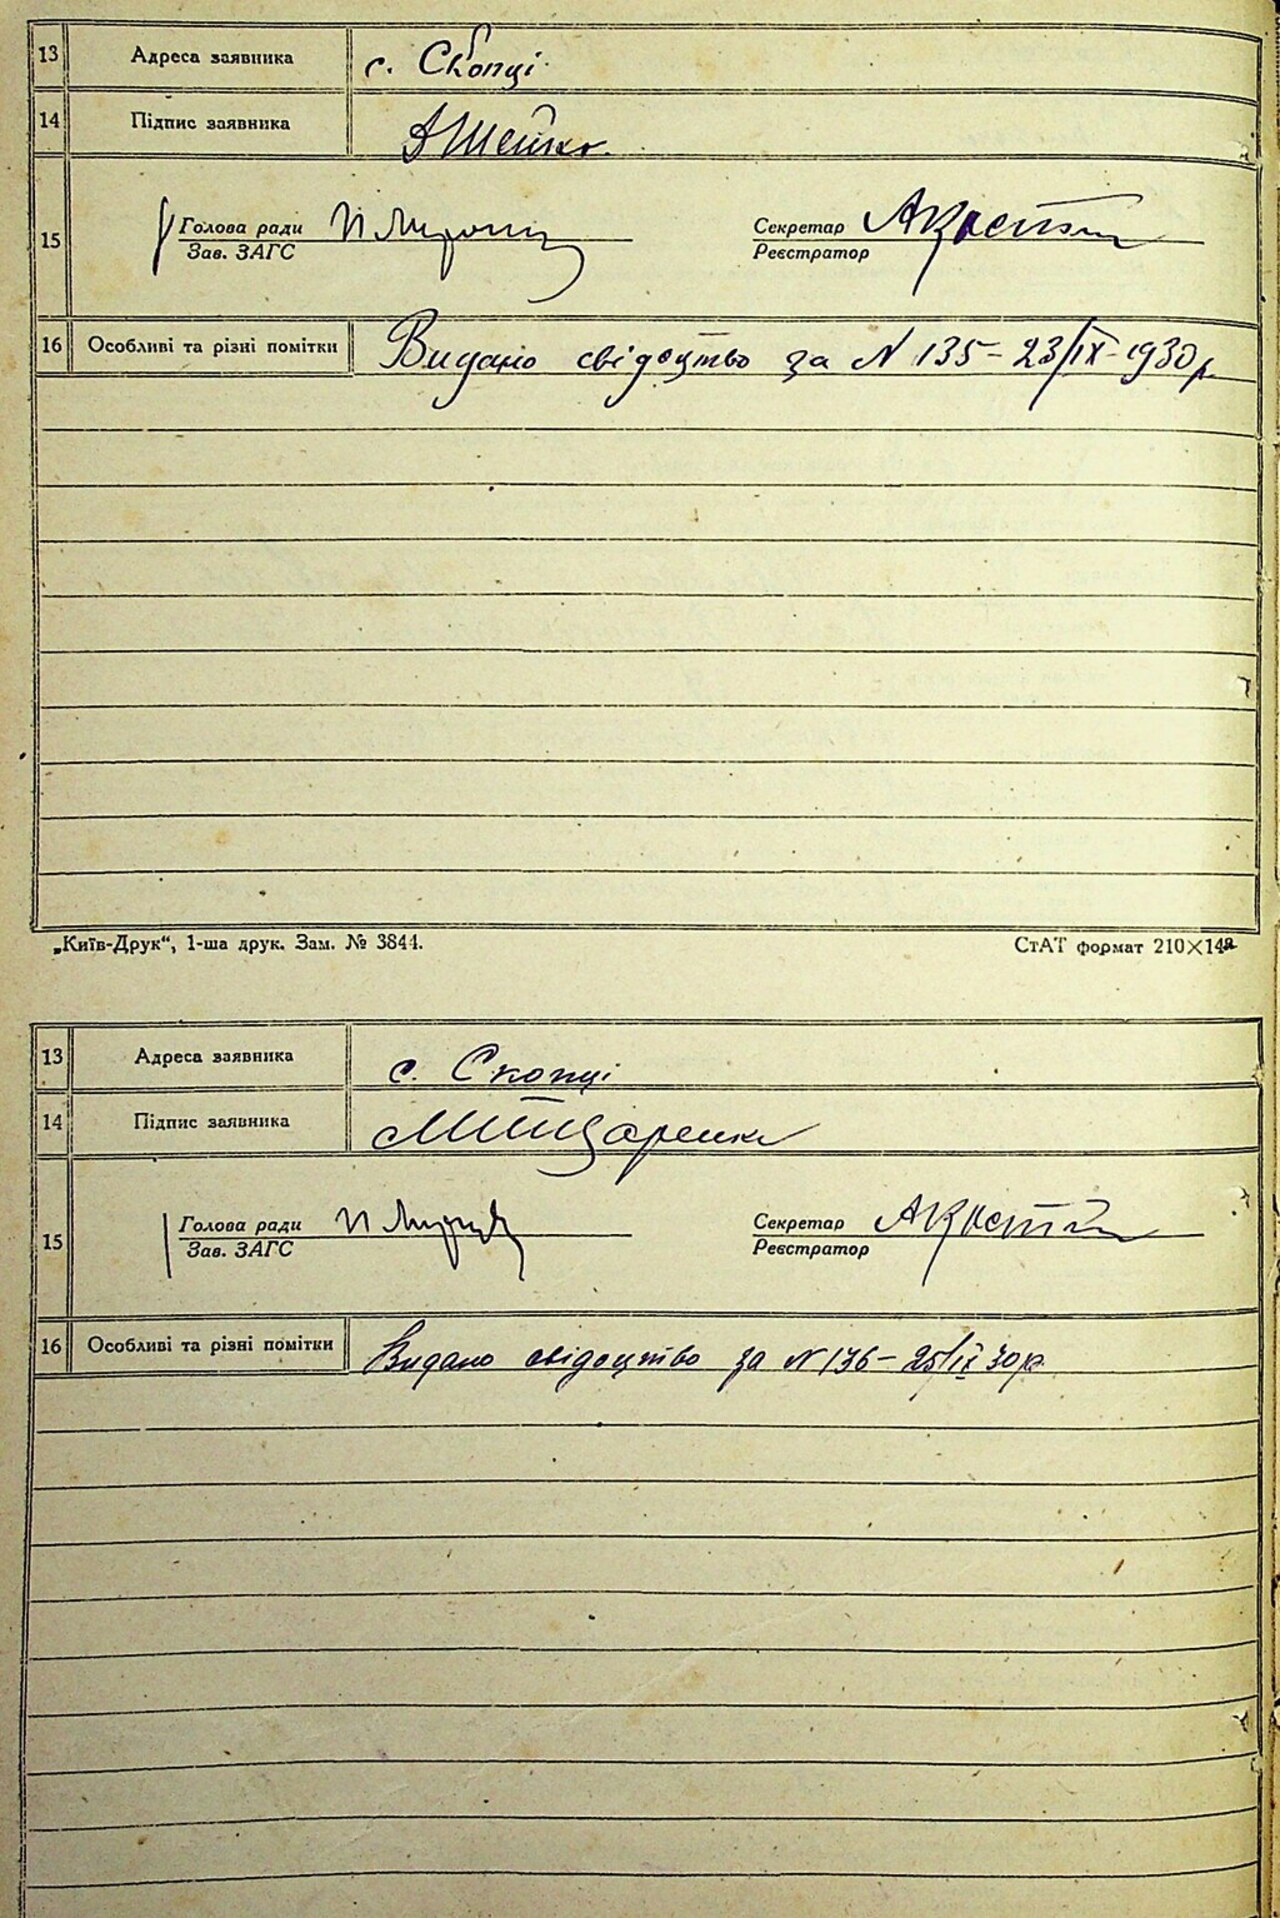 13 Адреса заявника с. Скопці
14 Підпис заявника А Шейко.
15 Голова ради Секретар
Зав. ЗАГС Реєстратор
16 Особливі та різні помітки Видано свідоцтво за N 135 - 23/IX - 1930 р.
„Київ-Друк“, 1-ша друк. Зам. № 3844. СтАТ формат 210×148
13 Адреса заявника с. Скопці
14 Підпис заявника
15 Голова ради Секретар
Зав. ЗАГС Реєстратор
16 Особливі та різні помітки Видано свідоцтво за N 136 - 25/IX 30 р.